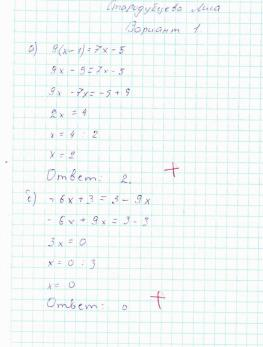 Стародубцева Лиза
Вариант 1
а) 9(x-1)=7x-5
9x-9=7x-5
9x-7x=-5+9
2x=4
x=4:2
x=2
Ответ: 2.
б) -6x+3=3-9x
-6x+9x=3-3
3x=0
x=0:3
x=0
Ответ: 0